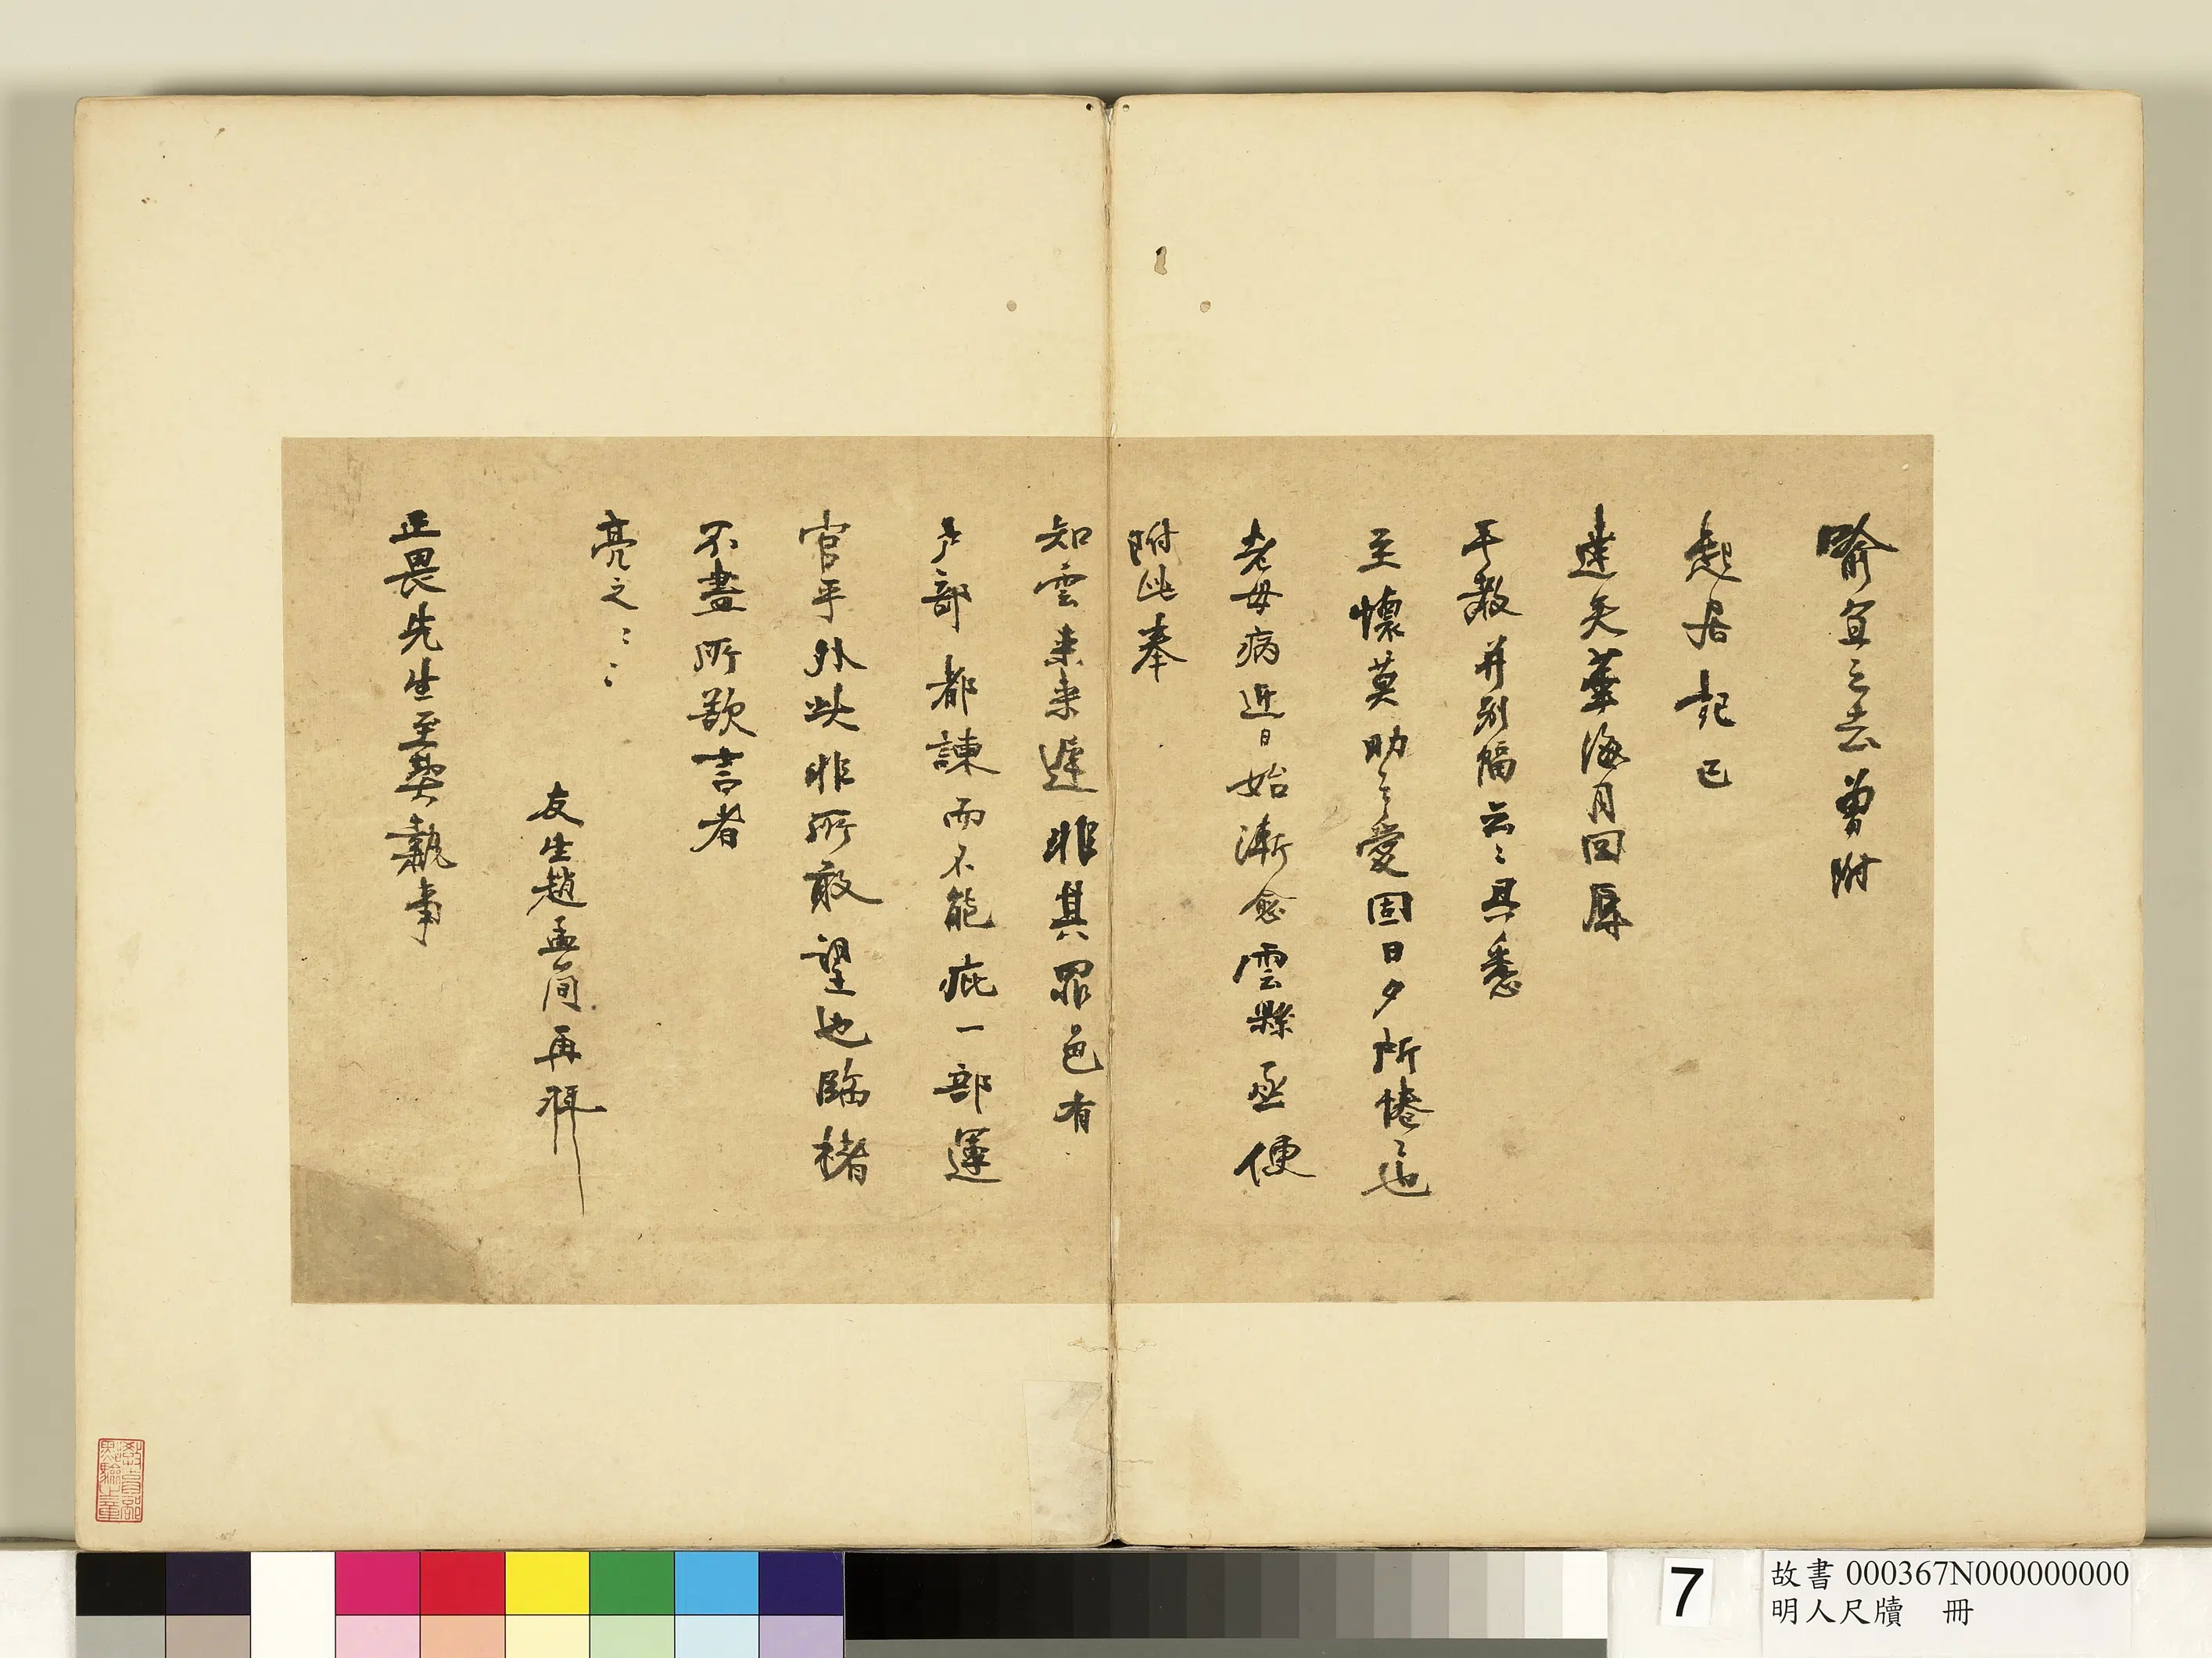 喻宜之去曾附
起居記已
達矣華海月回辱
手教并別幅云〻具悉
至懷莫助之愛固日夕所惓〻也
老母病近日始漸愈雲縣丞便
附此奉
知雲來來遲非其罪邑有
戶部都諫而不能庇一部運
官乎外此非所敢望也臨楮
不盡所欲言者
亮之〻〻
友生趙孟簡再拜
正畏先生至契執事
教育部
點驗之章
7
故書 000367N000000000
明人尺牘 冊